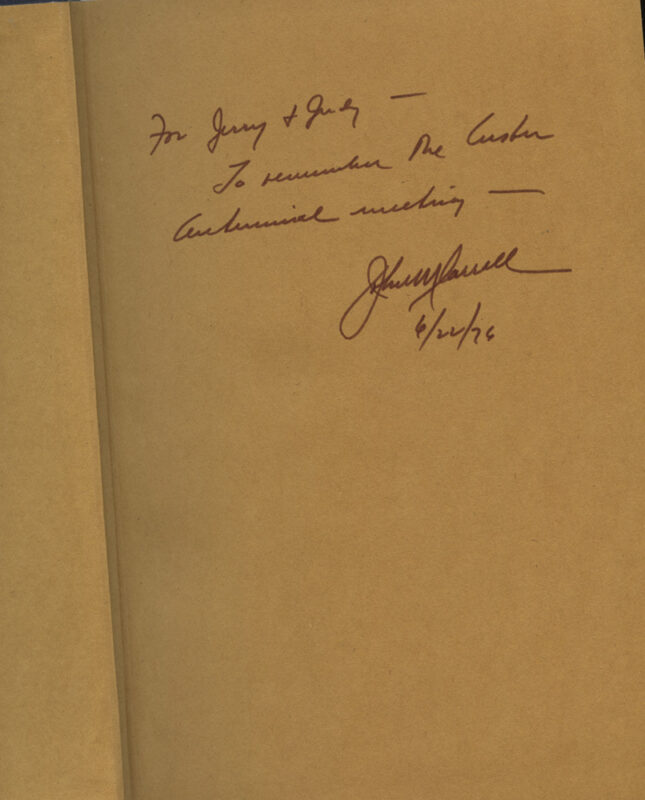 For Jerry & Judy —
To remember the Custer
Centennial meeting —
John M Carroll
6/22/76